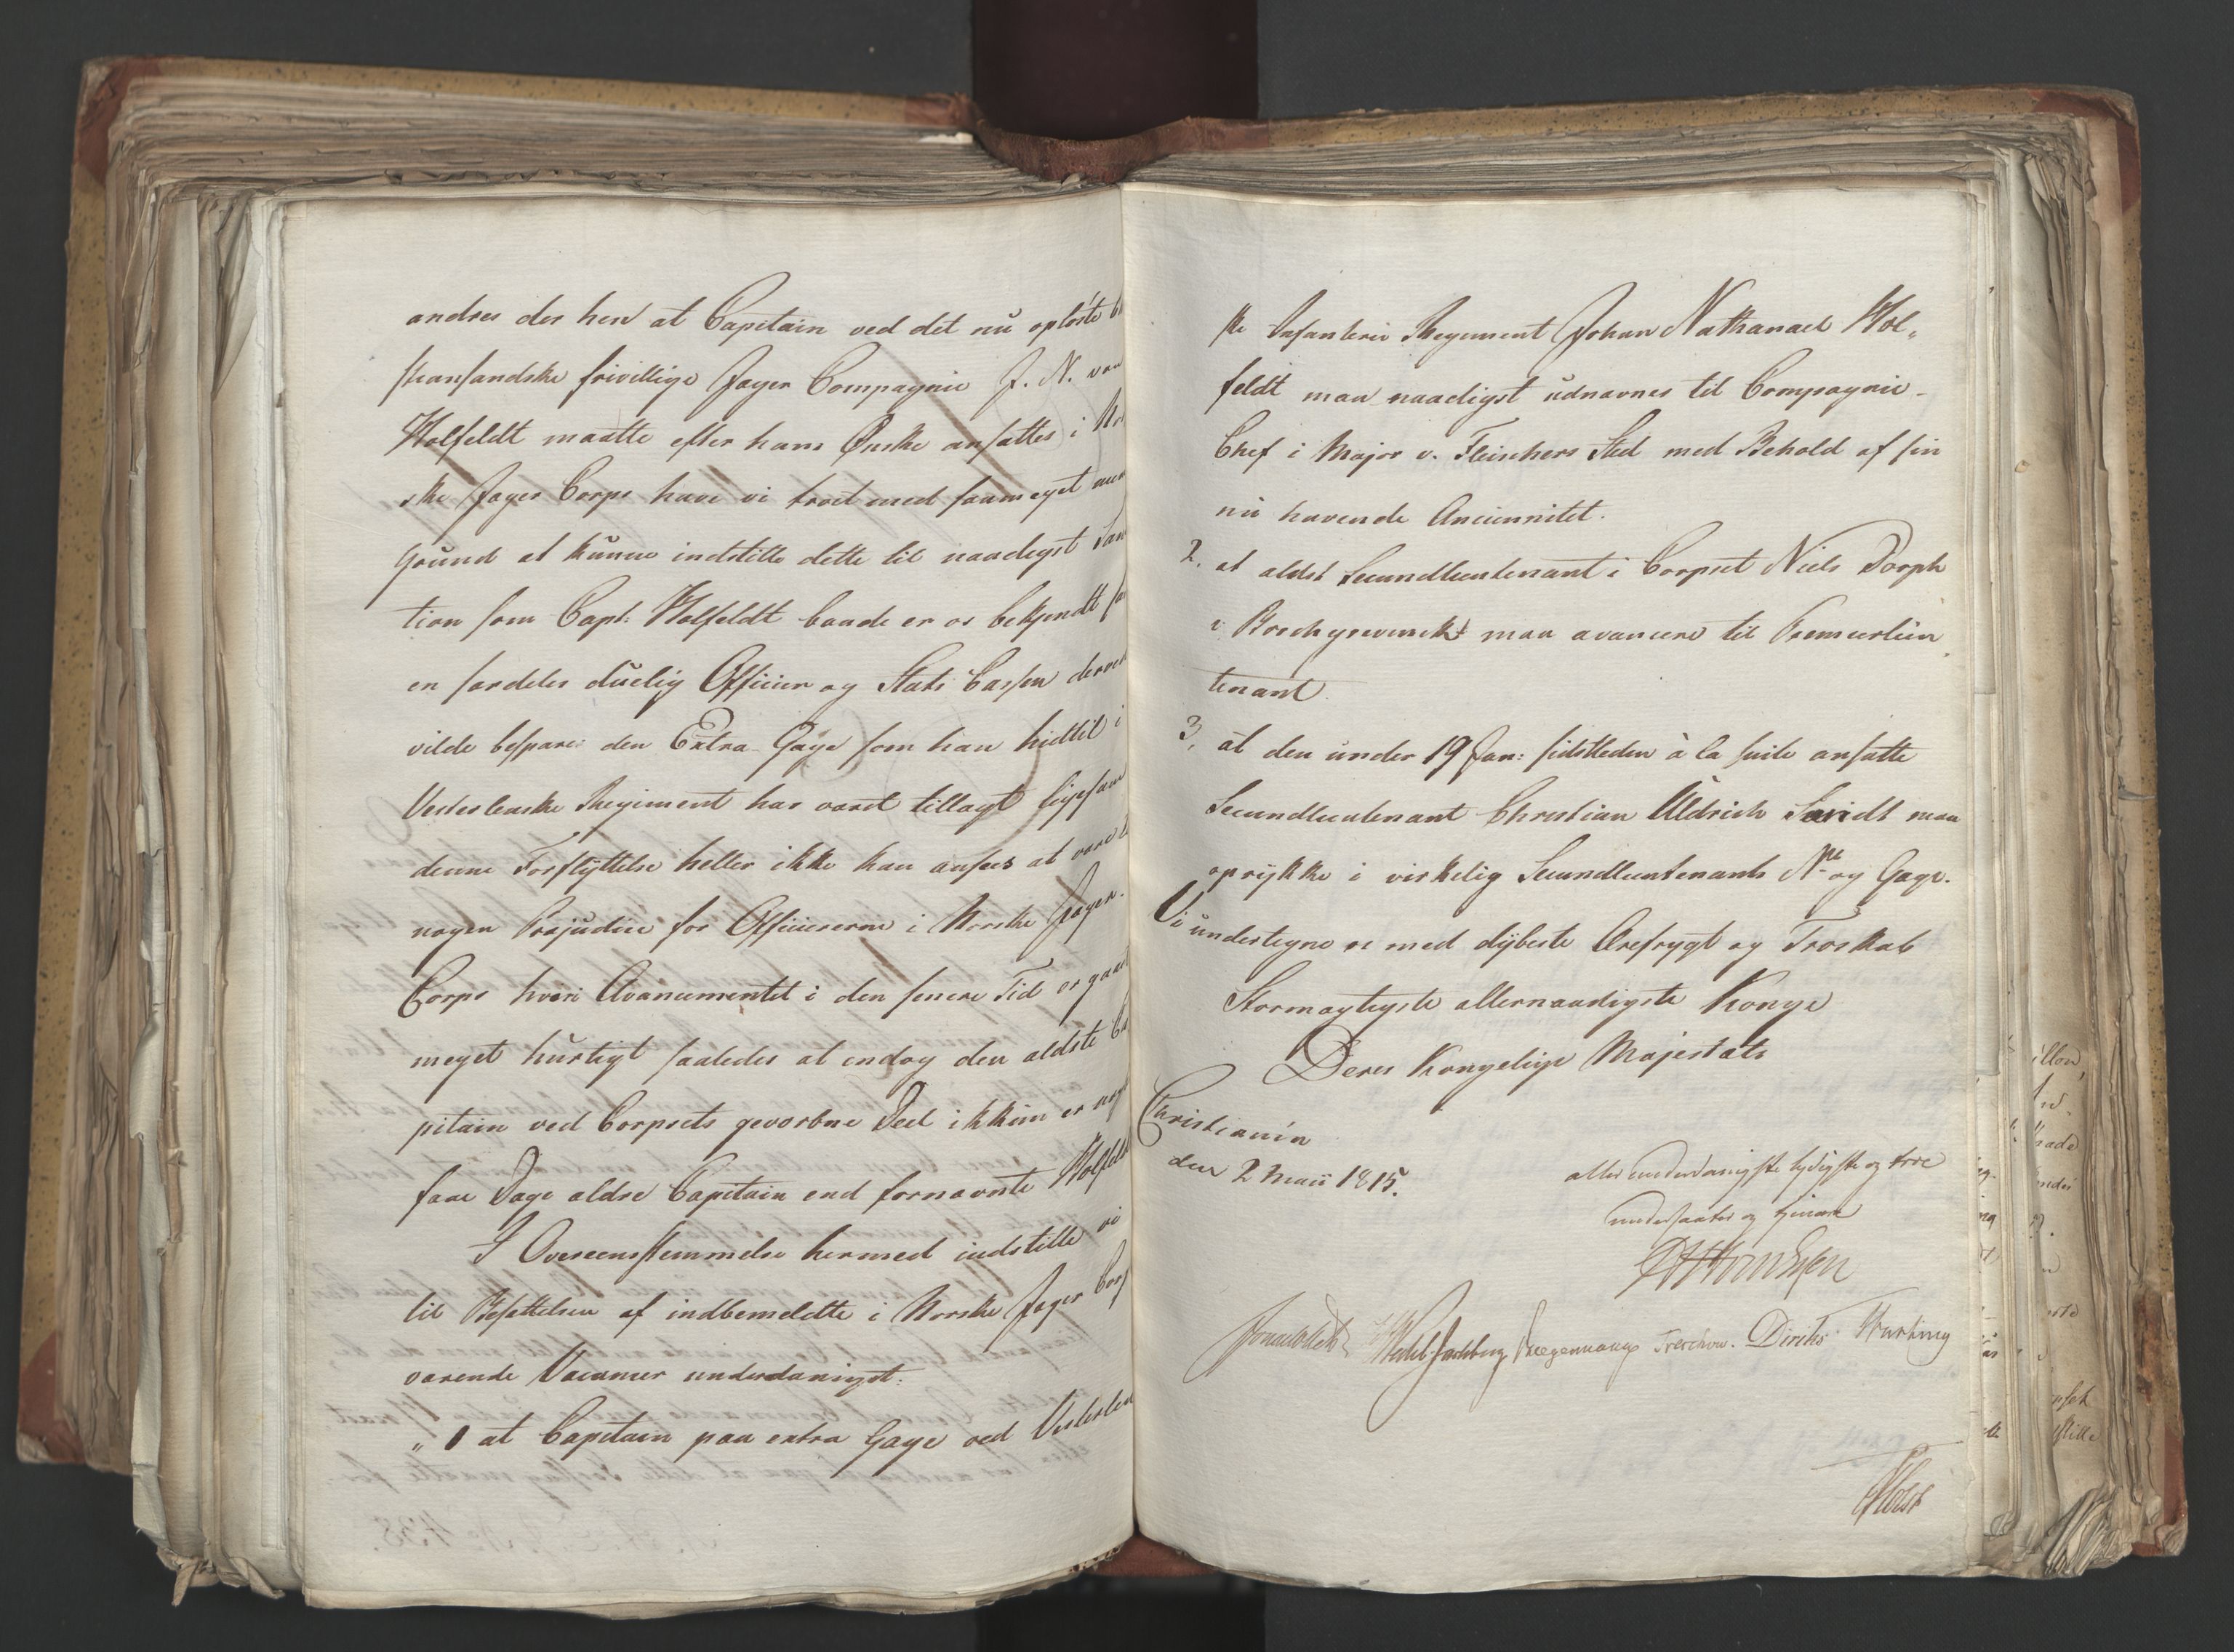 andres der hen at Capitain ved det nu opløste
stiansandske frivillige Jæger Compagnie J. N. von
Wolfeldt maatte efter hans Ønske ansættes i Nor
ske Jæger Corps have vi troet med saameget meer
Grund at kunne indstille dette til naadigst Sanc
tion som Capt: Wolfeldt baade er os bekjendt som
en særdeles duelig Officier og Stats Cassen derved
vilde bespare den Extra Gage som han hidtil i
Vesterlenske Regiment har været tillagt ligesom
denne Forflyttelse heller ikke kan ansees at være
nogen Præjudice for Officiererne i Norske Jæger
Corps hvori Avancementet i den senere Tid er gaaet
meget hurtigt saaledes at endog den ældste Ca
pitain ved Corpsets gevorbne Deel ikkun er nogle
faae Dage ældre Capitain end fornævnte Wolfeldt
I Overeensstemmelse hermed indstille vi
til Besættelsen af indbemeldte i Norske Jæger Corps
værende Vacancer underdanigst:
" 1 at Capitain paa extra Gage ved Vesterlen
ske Infanterie Regiment Johan Nathanael Wol-
feldt maa naadigst udnævnes til Compagnie-
Chef i Major v. Fleischers Sted med Behold af sin
nu havende Anciennitet.
2. at ældst Secundlieutenant i Corpset Niels Dorph
maa avancere til Premierlieu
tenant.
3, at den under 19 Jan: sidstleden à la suite ansatte
Secundlieutenant Christian Uldrich maa
oprykke i virkelig Secundlieutenants No og Gage.
Vi undertegne os med dybeste Ærefrygt og Troskab
Stormægtigste allernaadigste Konge
Deres Kongelige Majestæts
Christiania
den 2 Maii 1815.
allerunderdanigste lydigste og troe
undersaatter og tjenere
Sommerhielm Wedel-Jarlsberg Krogh Treschow. Diriks
Holst